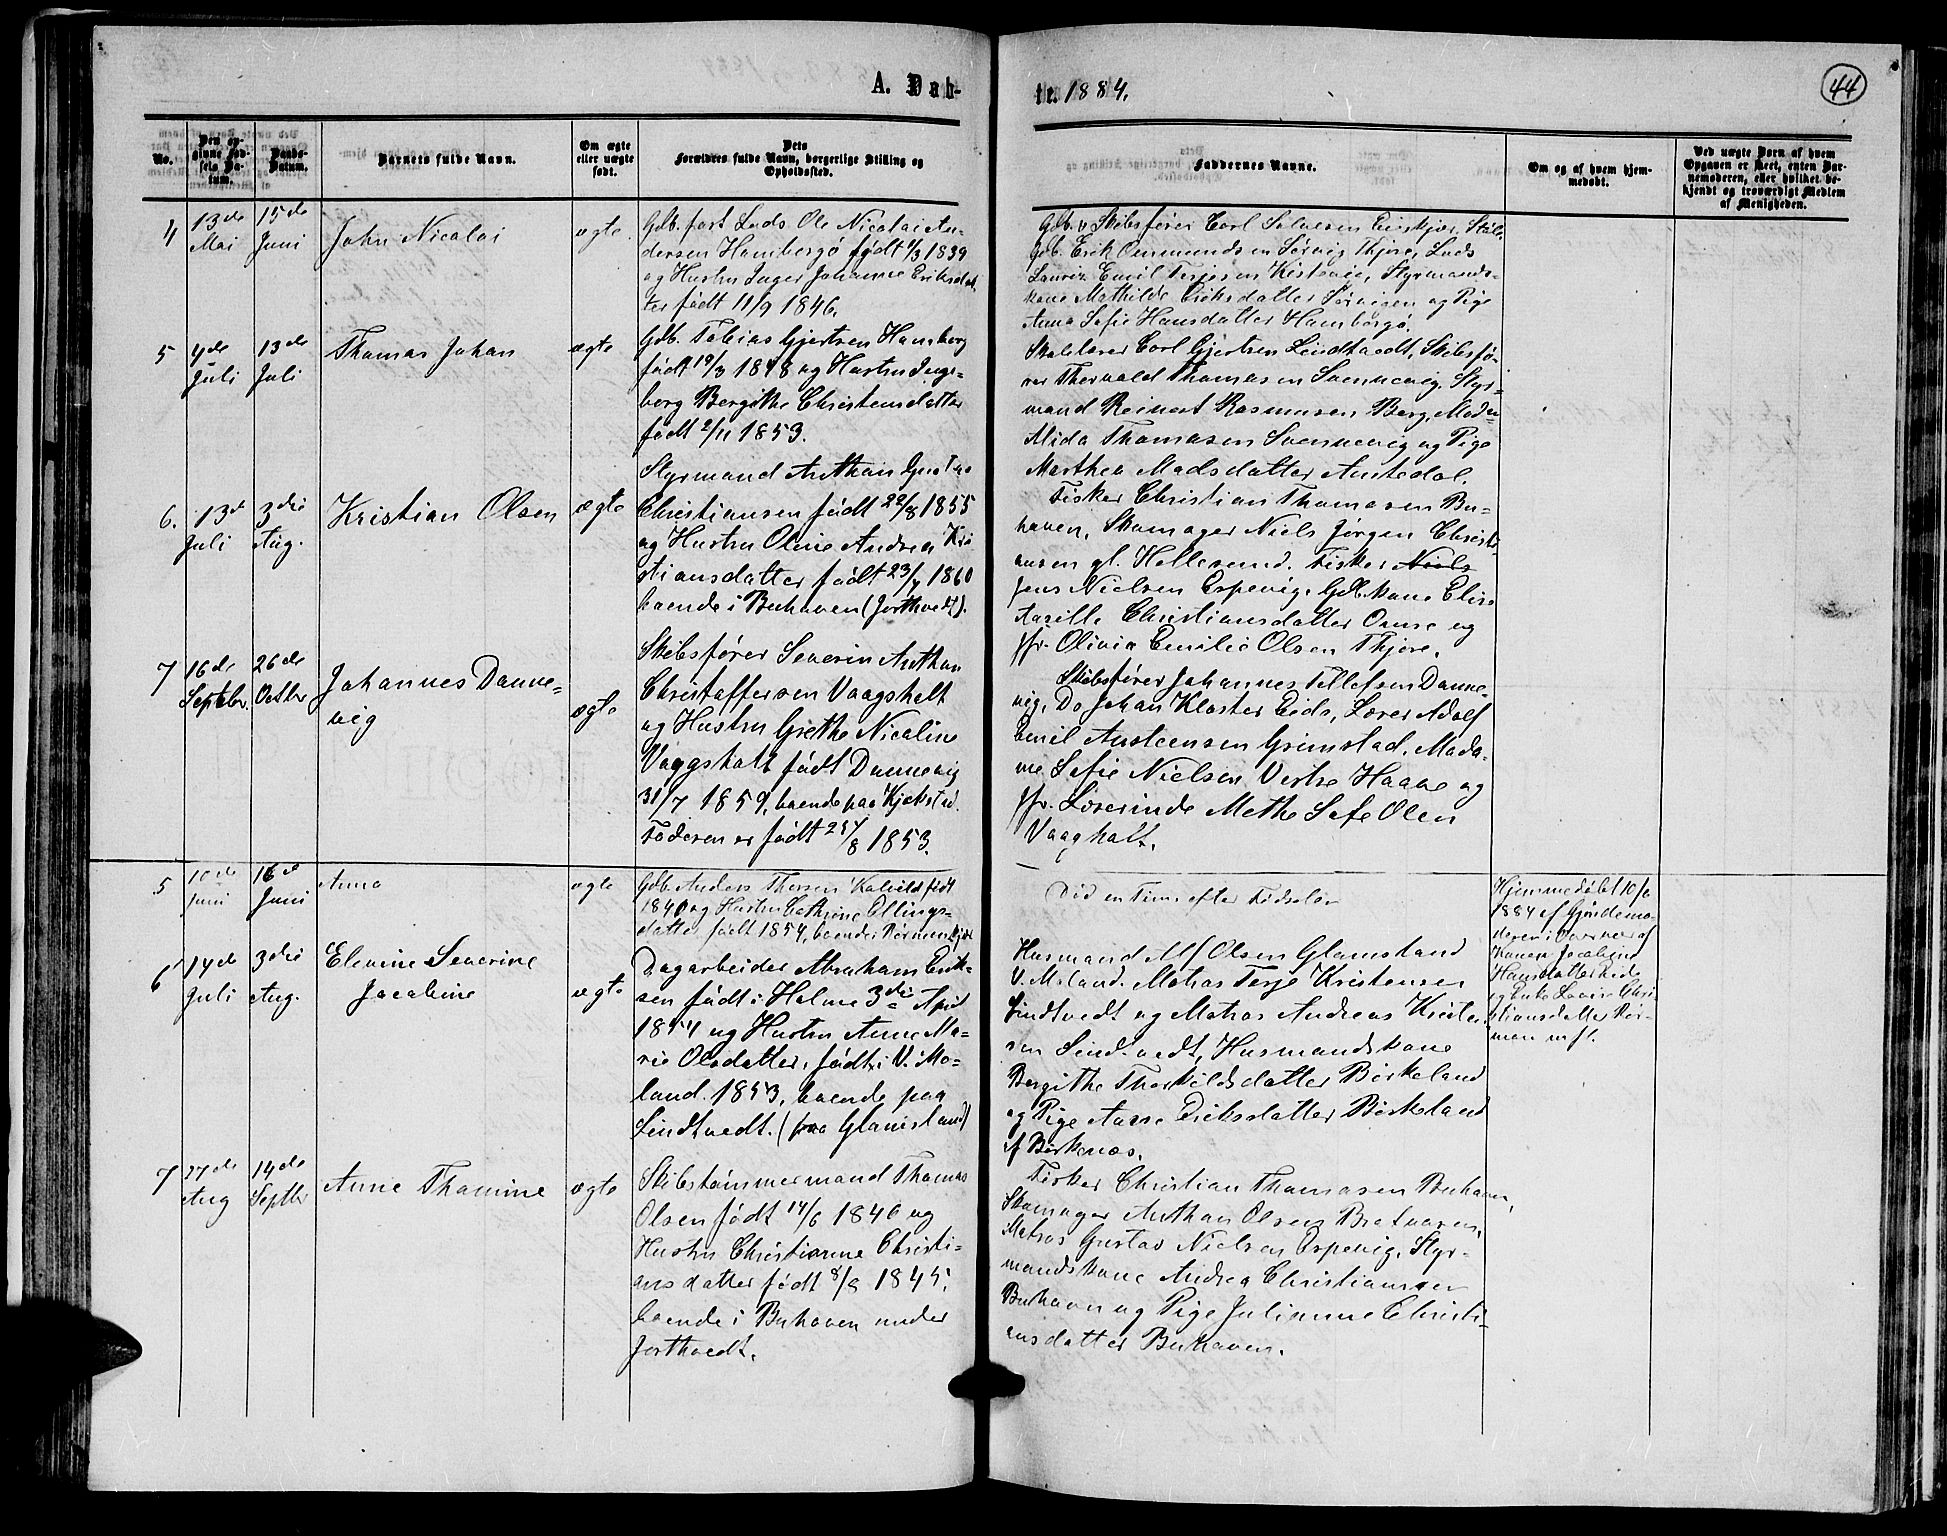 A. Døb-
te. 1884.
44
No.
Den op-
givne Fød-
sels Da-
tum.
Daabs-
Datum.
Barnets fulde Navn.
Om ægte
eller uægte
født.
Dets
Forældres fulde Navn, borgerlige Stilling og
Opholdssted.
Faddernes Navne.
Om og af hvem hjem-
medøbt.
Ved uægte Barn af hvem
Opgaven er skeet, enten Bar-
nemoderen, eller hvilket be-
kjendt og troværdigt Medlem
af Menigheden.
4
13de
Mai
15de
Juni
John Nicolai
ægte.
Gdb. fast Lods Ole Nicolai An-
dersen Homborgø født 1/3 1839
og Hustru Inger Johanne Eriksdat-
ter født 11/9 1846.
Skibsfører Carl
Gdb. Erik Onsmundsen Sørvig Thjøre, Lods
Lauriz Emil Terjesen Kistevig, Styrmands-
kone Mathilde Eriksdatter Sørvigen og Pige
Anna Sofie Hansdatter Homborgø.
5
4de
Juli
13de
Juli
Thomas Johan
ægte
Gdb. Tobias Gjertsen Homborg
født 19/3 1848 og Hustru Inge-
borg Bergithe Christensdatter
født 2/11 1853.
Skolelærer Carl Gjertsen Lindtvedt, Skibsfø-
rer Thorvald Thomasen Svennevig, Styr-
mand Reinert Rasmusen Berg, Madm
Mida Thomasen Svennevig og Pige
Marthea Madsdatter Anstedal.
6.
13d
Juli
3die
Aug.
Kristian Olsen
ægte
Styrmand Anthon Gustav
Christiansen født 22/8 1855
og Hustru Oline Andrea Kri
stiansdatter født 23/7 1860
boende i Buhaven (Jorthvedt).
Fisker Christian Thomasen Bu-
haven, Skomager Niels Jørgen Christi-
ansen gl. Hellesund. Fisker Niels
Jens Nielsen Espevig, Gdb.kone Elise
Christiansdatter Omre og
Jfr. Olivia Emilie Olsen Thjøre.
7
16de
Septebr.
26de
Octbr
Johannes Danne-
vig
ægte
Skibsfører Severin Anthon
Christoffersen Vaagsholt
og Hustru Grethe Nicoline
Vaagsholt født Dannevig
31/7 1859, boende paa Kjekstad.
Faderen er født 24/8 1853.
Skibsfører Johannes Tellefsen Danne-
vig, Do Johan Kloster Eide, Lærer Adolf
Emil Austensen Grimstad, Mada-
me Sofie Nielsen Vestre Haave og
Jfr. Lærerinde Methe Sofie Olsen
Vaagholt.
5
10de
Juni
16d
Juni
Anna
ægte
Gdb. Anders Thorsen Kalvild født
1840 og Hustru Cathrine Ellings-
datter, født 1854, boende
Død en Time efter Fødselen
Hjemmedøbt 10/6
1884 af Gjordemo-
deren i Overvær af
Konen Jacobine
Hansdatter Eide
og Enke Lovise Chri-
stiansdatter Nør-
6
14de
Juli
3die
Aug.
Elevine Severine
Jacobine
ægte
Dagarbeider Abraham Erik-
sen født i Holme 3die April
1854 og Hustru Anne Ma-
rie Olsdatter, født i V. Mo-
land. 1853, boende paa
Lindtvedt. (fra Glamsland)
Husmand Alf Olsen Glamsland
V. Moland. Matros Terje Kristensen
Lindtvedt og Matros Andreas Kristen-
sen Lindtvedt, Husmandskone
Bergithe Thorkildsdatter Birkeland
og Pige Aase Eriksdatter Birkeland
af Birkenæs.
7
27de
Aug
14de
Septbr
Anne Thomine
ægte
Skibstømmermand Thomas
Olsen født 14/6 1840 og
Hustru Christianne Christi-
ansdatter født 8/8 1845.
boende i Buhaven under
Jorthvedt.
Fisker Christian Thomasen Buhaven,
Skomager Anthon Olsen Bretvoren,
Matros Gustav Nielsen Espevig, Styr-
mandskone Andrea Christiansen
Buhaven og Pige Julianne Christi-
ansdatter Buhaven.